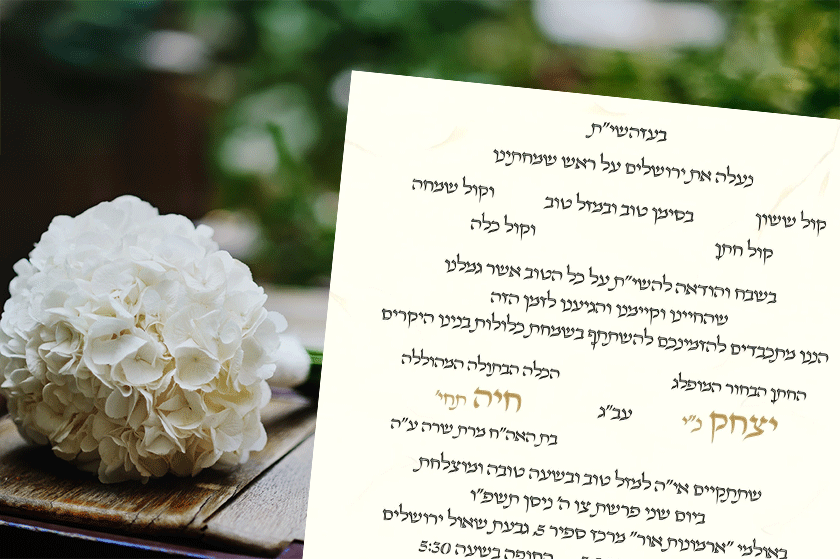 בעזהשי"ת
נעלה את ירושלים על ראש שמחתינו
קול ששון בסימן טוב ובמזל טוב וקול שמחה
קול חתן וקול כלה
בשבח והודאה להשי"ת על כל הטוב אשר גמלנו
שהחיינו וקיימנו והגיענו לזמן הזה
הננו מתכבדים להזמינכם להשתתף בשמחת כלולות בנינו היקרים
החתן הבחור המופלג הכלה הבתולה המהוללה
יצחק ני" עב"ג חיה תחי'
בת האה"ח מרת שרה ע"ה
שתתקיים אי"ה למזל טוב ובשעה טובה ומוצלחת
ביום שני פרשת צו ה' ניסן תשפ"ו
באולמי "ארמונות אור" מרכז ספיר 5, גבעת שאול ירושלים
החופה בשעה 5:30